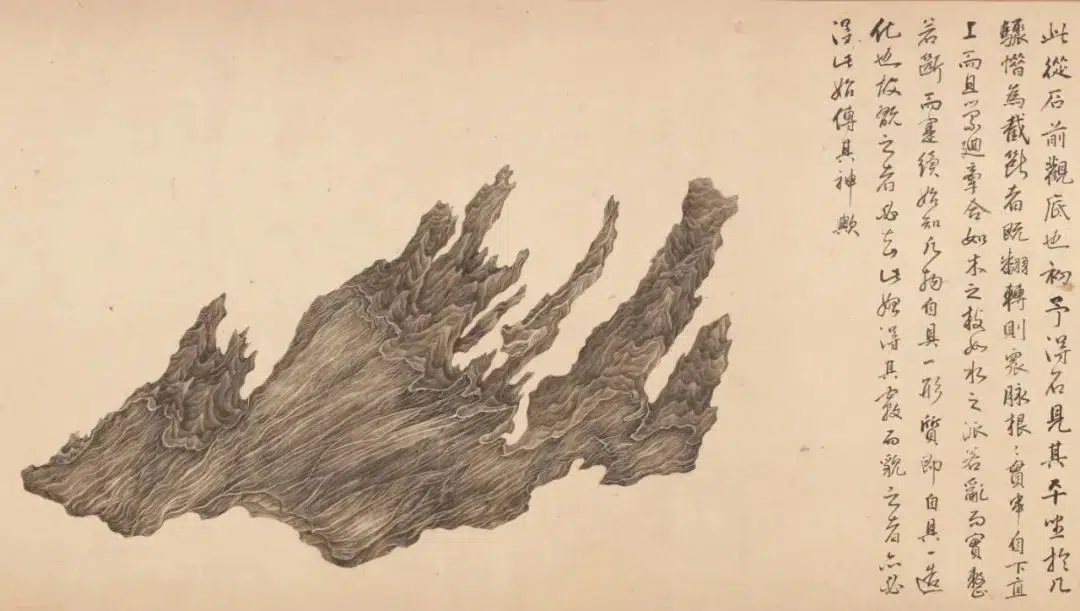 此從后前觀底也初予得石見其平坐於几
驟惜為截斷者既翻轉則衆脉根〻貫串自下直
上而且縈迴牽合如木之枝如水之派若亂而實整
若斷而寔續始知凡物自具一形質即自具一造
化也故觀之者必去此始得其竅而貌之者亦必
得此始傳其神歟